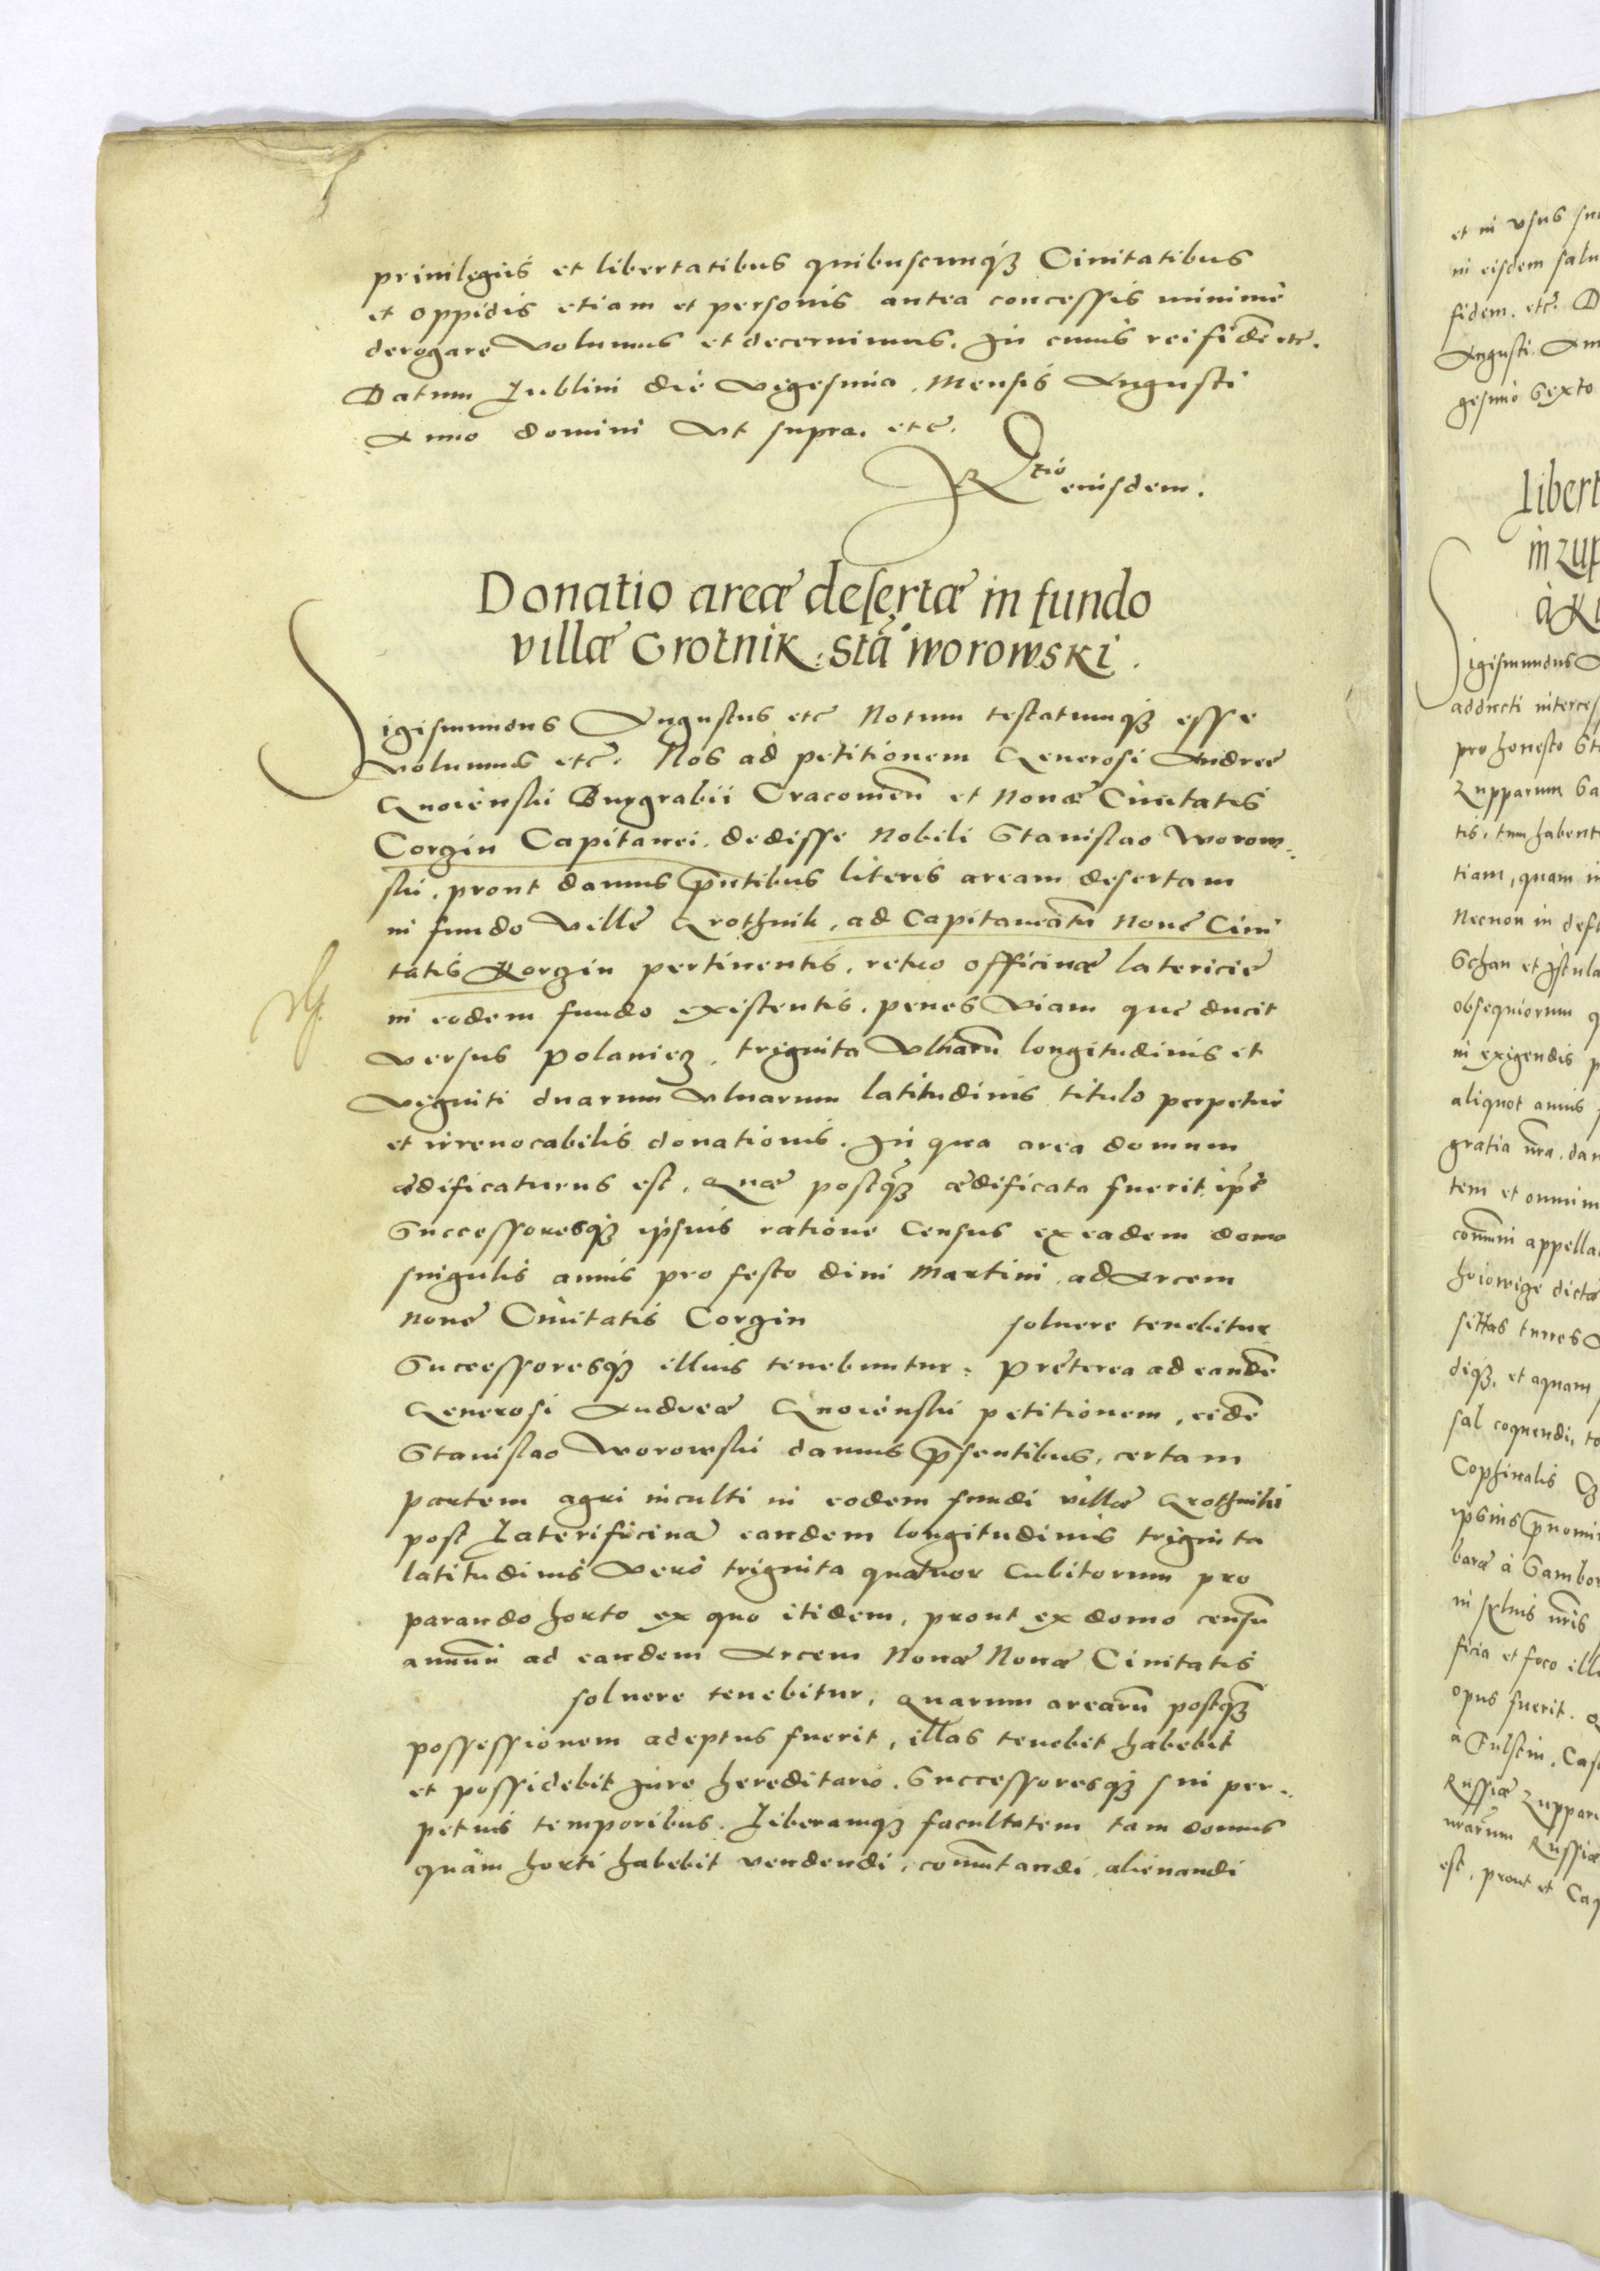 privilegiis et libertatibus quibuscunqꝫ Civitatibus
et oppidis etiam et personis antea concessis minimè
derogare volumus et decernimus. In cuius rei fidē etc.
Datum Lublini die vigesima Mensis Augusti
Anno domini Ut supra. etc.
Rtio eiusdem.
Donatio areæ desertæ in fundo
villæ Grotnik. Sta° worowski.
Sigismundus Augustus etc Notum testatumqꝫ esse
volumus etc. Nos ad petitionem Generosi Andree
Gnoienski Burgrabii Cracovień et Novæ Civitatis
Corgin Capitanei, dedisse Nobili Stanislao Worow-
ski, prout damus pñtibus literis aream desertam
in fundo Ville Grothnik, ad Capitaneatū Nove Civi
tatis Korgin pertinentis, retro officinæ latericie
in eodem fundo existentis, penes Viam que ducit
versus Polaniecz, triginta Ulnarū longitudinis et
viginti duarum Ulnarum latitudinis titulo perpetue
et irrevocabilis donationis. In qua area domum
ædificaturus est, Quæ postqꝫ ædificata fuerit, ipse
Successoresqꝫ ipsius ratione Census ex eadem domo
singulis annis pro festo divi Martini, ad Arcem
Nove Civitatis Corgin solvere tenebitur
Successoresqꝫ illius tenebuntur. Præterea ad eandē
Generosi Andreæ Gnoienski petitionem, eidē
Stanislao Worowski damus p̄sentibus, certam
partem agri inculti in eodem fundi villæ Grothniki
post Laterificinā eandem longitudinis triginta
latitudinis verò triginta quatuor Cubitorum pro
parando horto ex quo itidem, prout ex domo censū
annuū ad eandem Arcem Novæ Novæ Civitatis
solvere tenebitur, Quarum arearū postqꝫ
possessionem adeptus fuerit, illas tenebit habebit
et possidebit Jure hereditario, Successoresqꝫ sui per-
petuis temporibus. Liberamqꝫ facultatem tam domus
quàm horti habebit vendendi, comūtandi, alienandi
et in usus su
in eisdem salu
fidem. etc. D
Augusti. An
gesimo Sexto
Libert
in zup
à K
Sigismundus
adducti interces
pro honesto St
Zupparum Sa
tis, tum habent
tiam, quam in
Necnon in def
obsequiorum q
in exigendis p
aliquot annis
gratia nrā. dan
tem et omnim
comuni appella
sal coquendi, to
opus fuerit.
Russiæ Zuppar
est, prout et Cap